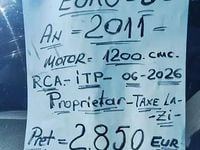 EURO-5
AN = 2011
MOTOR = 1200. cmc.
RCA - iTP - 06-2026
Proprietar - TAXE LA-
- Zi -
Preț = 2.850 EUR